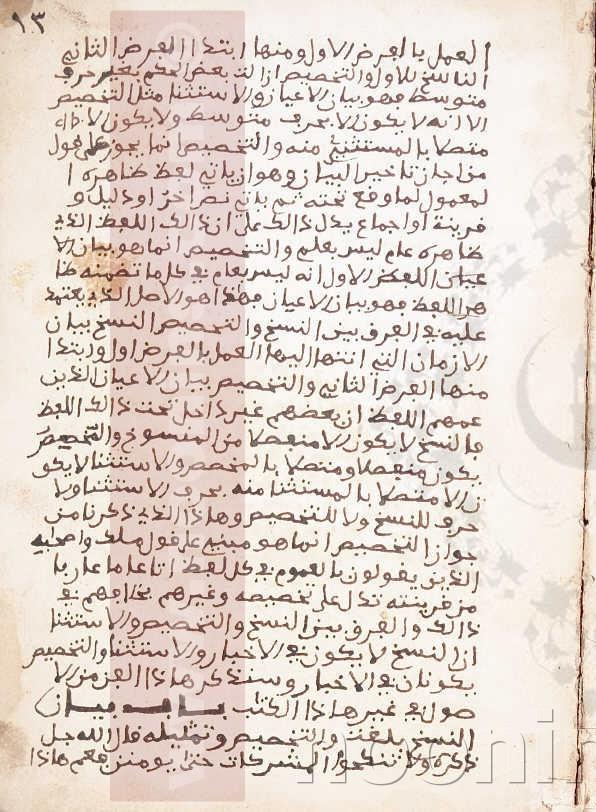 ١٣
العمل بالفرض الاول ومنها ابتدا الفرض الثاني
الناسخ للاول والتخصيص ازالت بعض الحكم بغير حرف
متوسط فهو بيان الاعيان والاستثنا مثل التخصيص
الا انه لا يكون الا بحرف متوسط ولا يكون الا
متصلا بالمستثنى منه والتخصيص انما يجوز على قول
من اجاز تاخير البيان وهو ان ياتي لفظ ظاهره ا
لمعمول لما وقع تحته ثم ياتي نص اخر او دليل و
قرينة او اجماع يدل ذالك على ان ذالك اللفظ الذي
ظاهره عام ليس بعام والتخصيص انما هو بيان الا
عيان اللفظ الاول انه ليس بعام في كل ما تضمنه ظا
هر اللفظ فهو بيان الاعيان فهذا هو الاصل الذي يعتمد
عليه في الفرق بين النسخ والتخصيص النسخ بيان
الازمان التي انتها اليها العمل بالفرض الاول وابتدا
منها الفرض الثاني والتخصيص بيان الاعيان الذين
عمهم اللفظ ان بعضهم غير داخل تحت ذالك اللفظ
فالنسخ لا يكون الا منفصلا من المنسوخ والتخصيص
يكون منفصلا ومتصلا بالمخصص والاستثنا لا يكو
ن الا متصلا بالمستثنا منه بحرف الاستثنا ولا
حرف للنسخ ولا للتخصيص وهاذا الذي ذكرنا من
جواز التخصيص انما هو مبني على قول ملك واصحابه
الذين يقولون بالعموم في كل لفظ اتا عاما عاريا
من قرينته تدل على تخصيصه وغيرهم يخالفهم في
ذالك والفرق بين النسخ والتخصيص والاستثنا
ان النسخ لا يكون في الاخبار والاستثنا والتخصيص
يكونان في الاخبار وسنذكر هاذا الفن من الا
صول في غير هاذا الكتب باب بيان
النسخ بلغت والتخصيص وتمثيله قال الله جل
ذكره ولا تنكحوا المشركات حتى يومن فعم هاذا
noonin